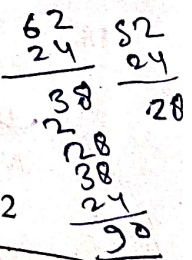 62 52
24 24
38 28
2
28
38
24
2
90